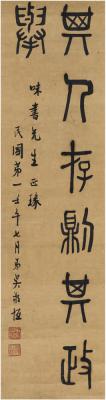 其人存則其政
舉
味書先生正
民國第一壬午七月弟吳敬恆